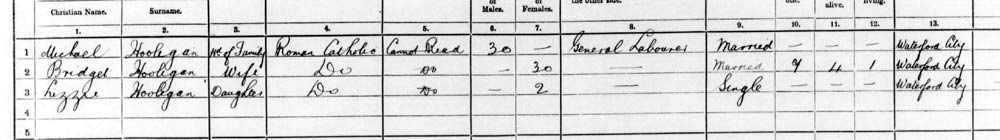 Christian Name. Surname. of Males. or Females. the other side. one. alive. living.
1. 2. 3. 4. 5. 6. 7. 8. 9. 10. 11. 12. 13.
1 Michael Hooligan Hd of Family Roman Catholic Cannot Read 30 — General Labourer Married — — — Waterford City
2 Bridget Hooligan Wife Do Do — 30 — Married 7 4 1 Waterford City
3 Lizzie Hooligan Daughter Do Do — 2 — Single — — — Waterford City
4
5